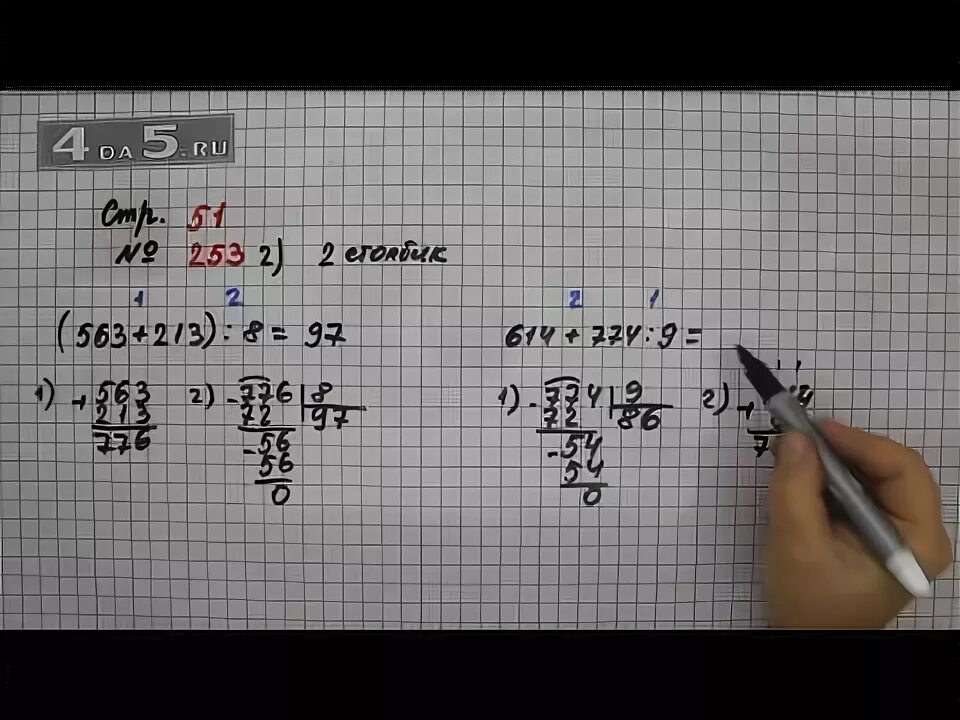 4 DA 5.RU
Стр. 51
№ 253 2) 2 столбик
1 2
(563+213) : 8 = 97
2 1
614 + 774 : 9 =
1) + 563
213
776
2) - 776 | 8
72 97
- 56
56
0
1) - 774 | 9
72 86
- 54
54
0
2) +
1 1
4
7